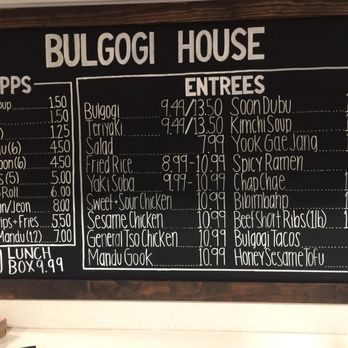 BULGOGI HOUSE
PPS
oup 1.50
1.50
1.25
u (6) 4.50
on (6) 4.50
s (5) 5.00
Roll 6.00
n/Jeon 8.00
ips + Fries 5.50
Mandu (12) 7.00
LUNCH
BOX 9.99
ENTREES
Bulgogi 9.49/13.50
Teriyaki 9.49/13.50
Salad 7.99
Fried Rice 8.99-10.99
Yaki Soba 9.99-10.99
Sweet + Sour Chicken 10.99
Sesame Chicken 10.99
General Tso Chicken 10.99
Mandu Gook 10.99
Soon Dubu
Kimchi Soup
Yook Gae Jang
Spicy Ramen
Chap Chae
Bibimbahp
Beef Short Ribs (1lb)
Bulgogi Tacos
Honey Sesame Tofu